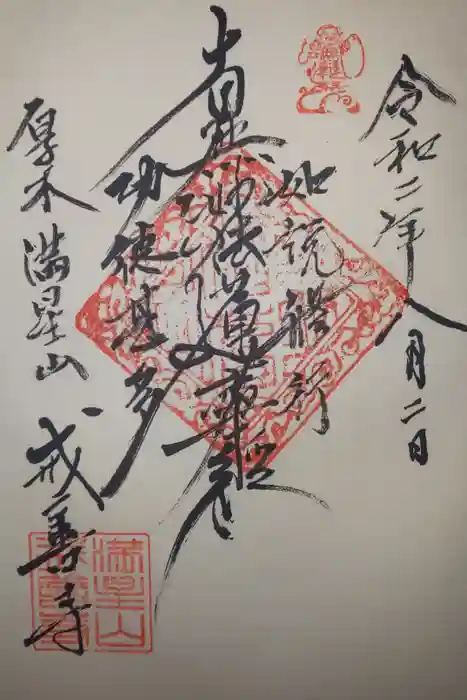 令和二年八月二日
如説修行
南無妙法蓮華経
功徳甚多
厚木 満星山 戒善寺
満星山
戒善寺